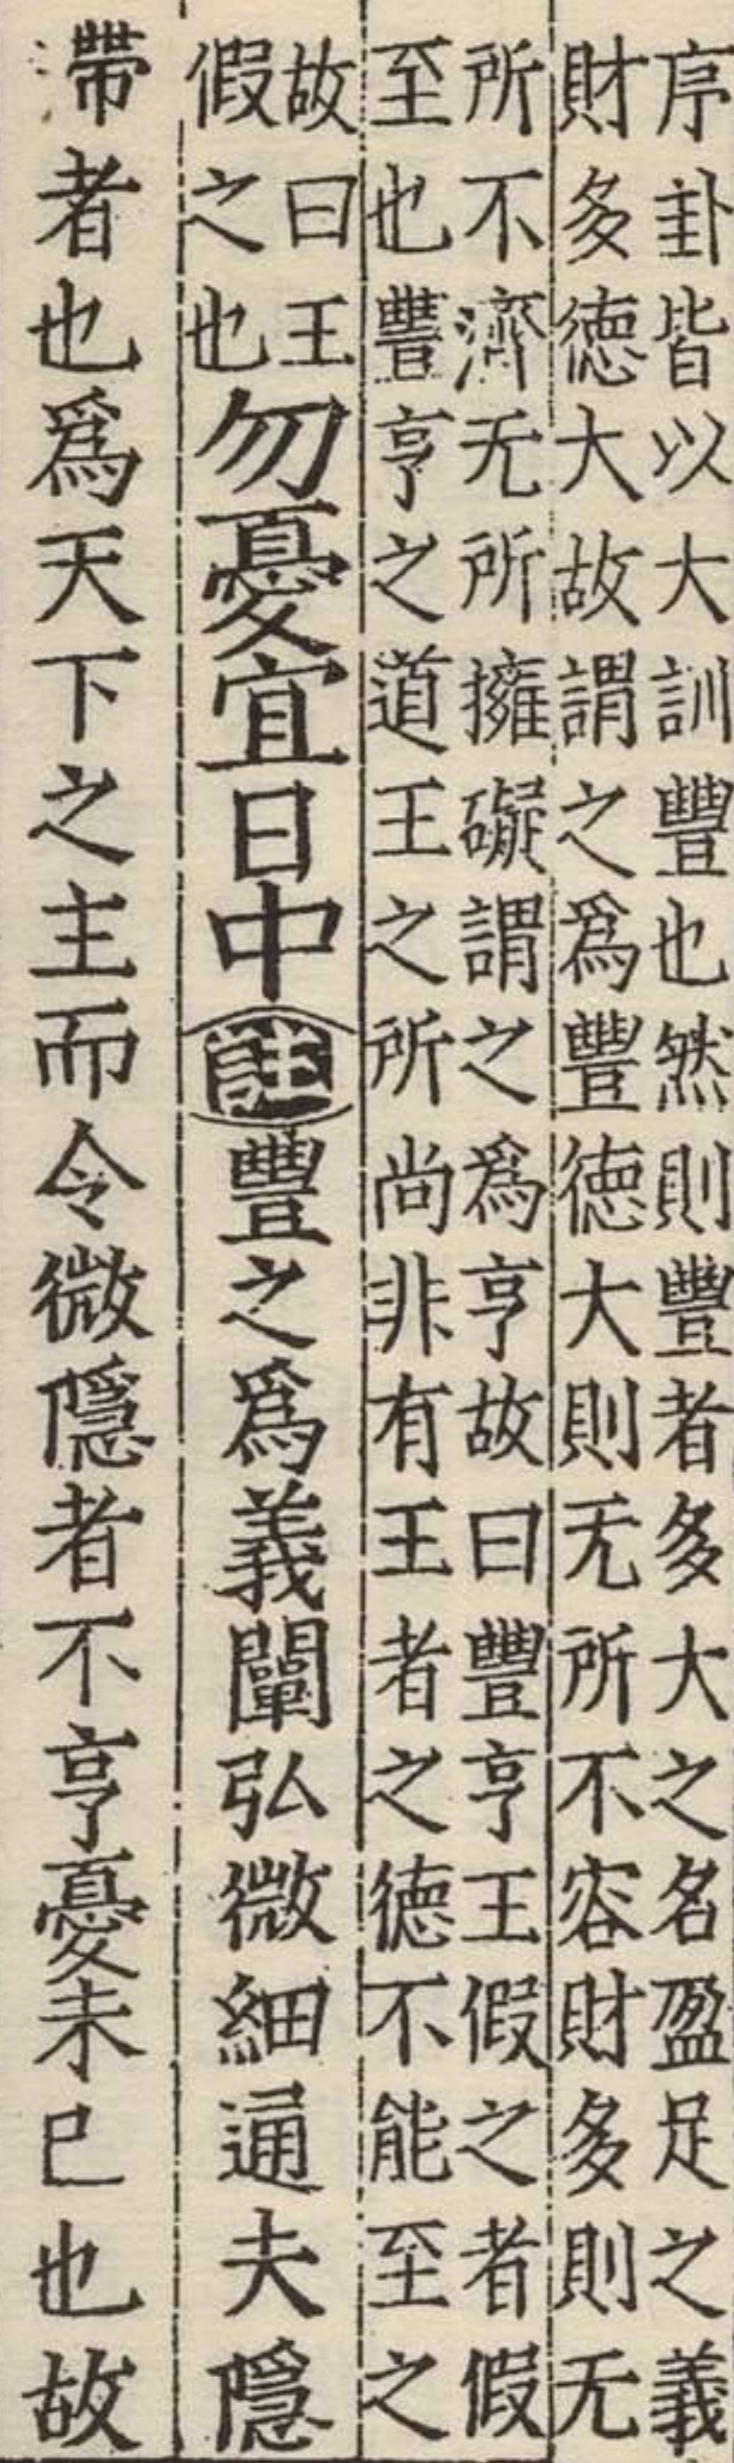 序卦皆以大訓豐也然則豐者多大之名盈足之義
財多德大故謂之爲豐德大則无所不容財多則无
所不濟无所擁礙謂之爲亨故曰豐亨王假之者假
至也豐亨之道王之所尚非有王者之德不能至之
故曰王
假之也
勿憂宜日中註豐之爲義闡弘微細通夫隱
滯者也爲天下之主而令微隱者不亨憂未已也故